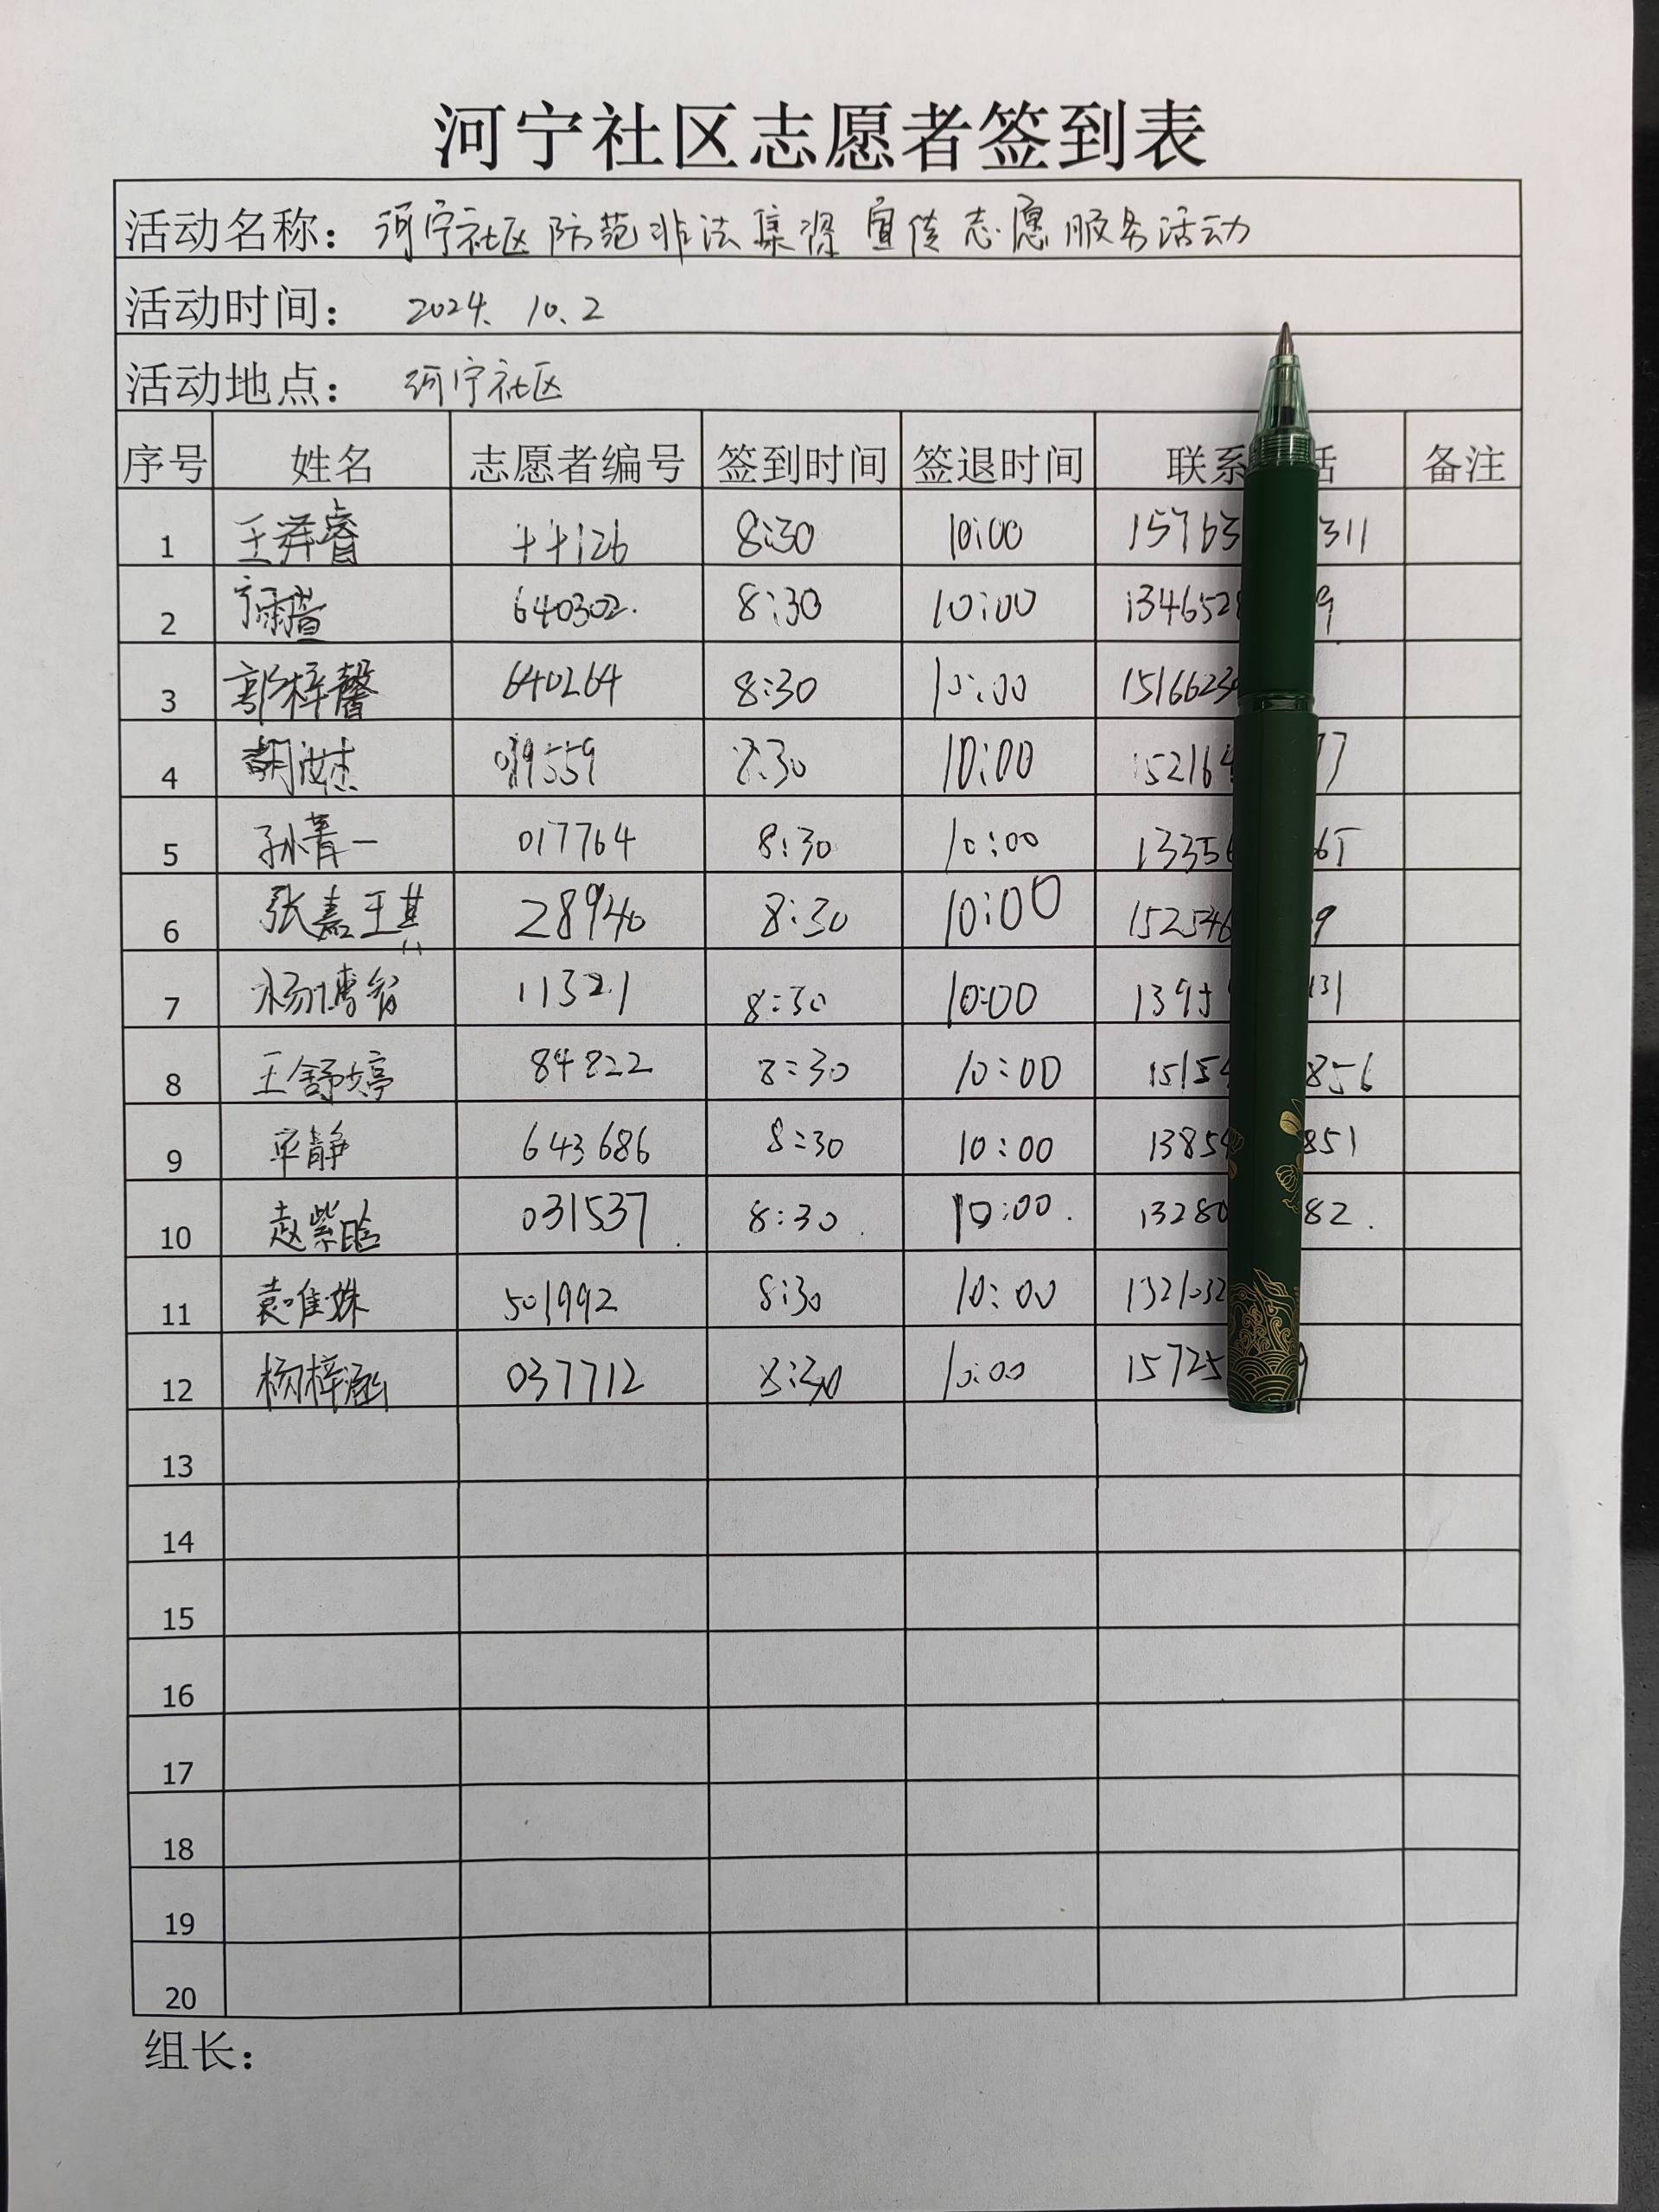 河宁社区志愿者签到表
活动名称：河宁社区防范非法集资宣传志愿服务活动
活动时间：2024.10.2
活动地点：河宁社区
序号 姓名 志愿者编号 签到时间 签退时间 联系 话 备注
1 王祥睿 44126 8:30 10:00 15763 311
2 640302. 8:30 10:00 1346528 9
3 郭梓馨 640264 8:30 10:00 1516623
4 胡 19559 8:30 10:00 15216 77
5 孙菁一 017764 8:30 10:00 13356 65
6 张嘉王其 28940 8:30 10:00 152546 9
7 杨博智 11321 8:30 10:00 1395 131
8 王舒婷 84822 8:30 10:00 15154 856
9 静 643686 8:30 10:00 1385 851
10 赵紫晗 031537 8:30 10:00. 13280 82.
11 袁唯姝 501992 8:30 10:00 1321032
12 杨梓涵 037712 8:30 10:00 15725 9
13
14
15
16
17
18
19
20
组长：